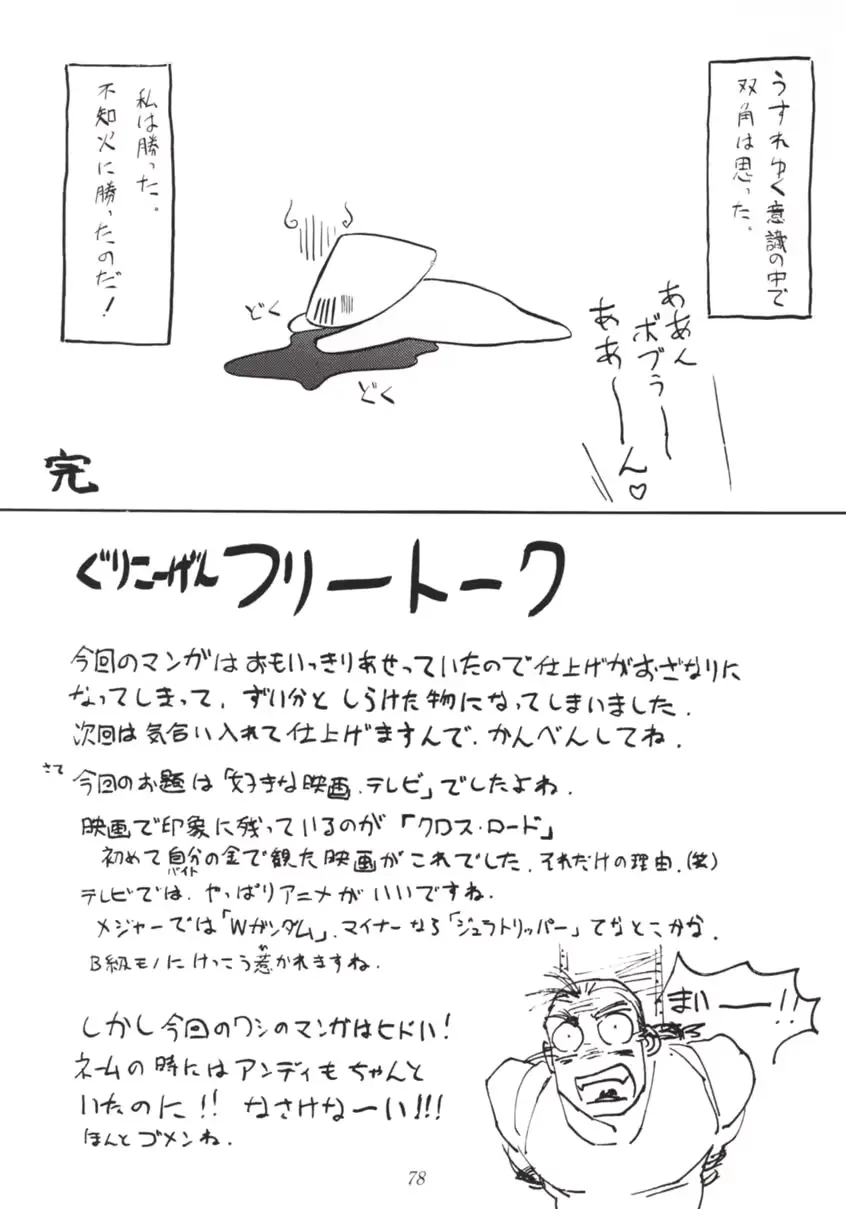 うすれゆく意識の中で
双角は思った。
ああん
ボブぅ〜
ああ〜ん♡
どく
どく
私は勝った。
不知火に勝ったのだ！
完
ぐりこーげん フリートーク
今回のマンガはおもいっきりあせっていたので仕上げがおざなりに
なってしまって、ずい分としらけた物になってしまいました.
次回は気合い入れて仕上げますんで、かんべんしてね.
さて
今回のお題は「好きな映画、テレビ」でしたよね.
映画で印象に残っているのが「クロス・ロード」
初めて自分の金で観た映画がこれでした. それだけの理由.(笑)
バイト
テレビでは、やっぱりアニメがいいですね.
メジャーでは「Wガンダム」、マイナーなら「ジュラトリッパー」てなとこかな.
B級モノにけっこう惹かれますね.
ひ
まいーー!!
しかし今回のワシのマンガはヒドい！
ネームの時にはアンディもちゃんと
いたのに!! なさけなーい!!!
ほんとゴメンね.
78